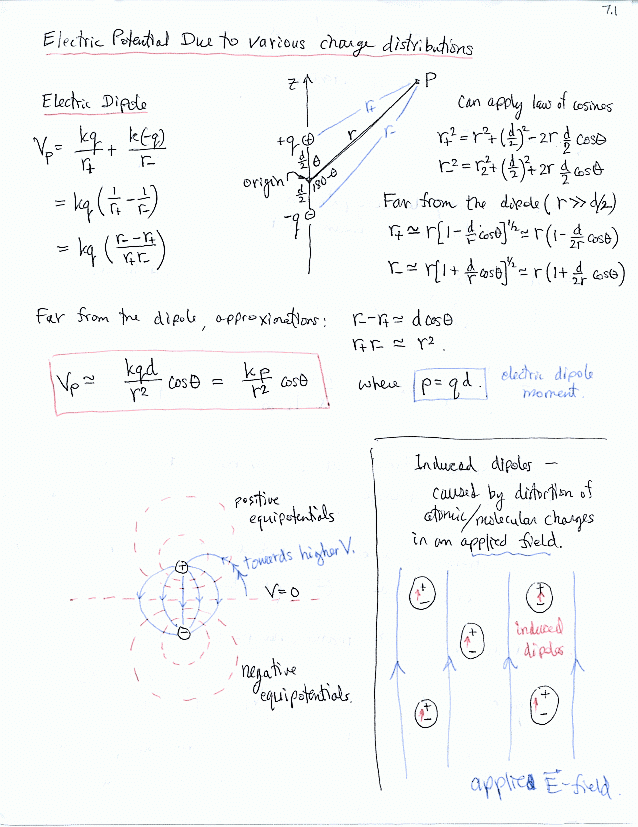 7.1
Electric Potential Due to various charge distributions
Electric Dipole
Vp = kq/r+ + k(-q)/r-
= kq (1/r+ - 1/r-)
= kq (r- - r+ / r+ r-)
z
P
r+
r
r-
+q
d/2
θ
origin
d/2
180-θ
-q
Can apply law of cosines
r+² = r² + (d/2)² - 2r d/2 cosθ
r-² = r₂² + (d/2)² + 2r d/2 cosθ
Far from the dipole (r ≫ d/2)
r+ ≃ r[1 - d/r cosθ]^1/2 ≃ r(1 - d/2r cosθ)
r- ≃ r[1 + d/r cosθ]^1/2 ≃ r(1 + d/2r cosθ)
Far from the dipole, approximations: r- - r+ ≃ d cosθ
r+ r- ≃ r².
Vp ≃ kqd/r² cosθ = kp/r² cosθ
where p = qd. electric dipole
moment.
positive
equipotentials
towards higher V.
+
V=0
-
negative
equipotentials.
Induced dipoles —
caused by distortion of
atomic/molecular charges
in an applied field.
+
-
+
-
+
-
induced
dipoles
+
-
+
-
applied E⃗-field.